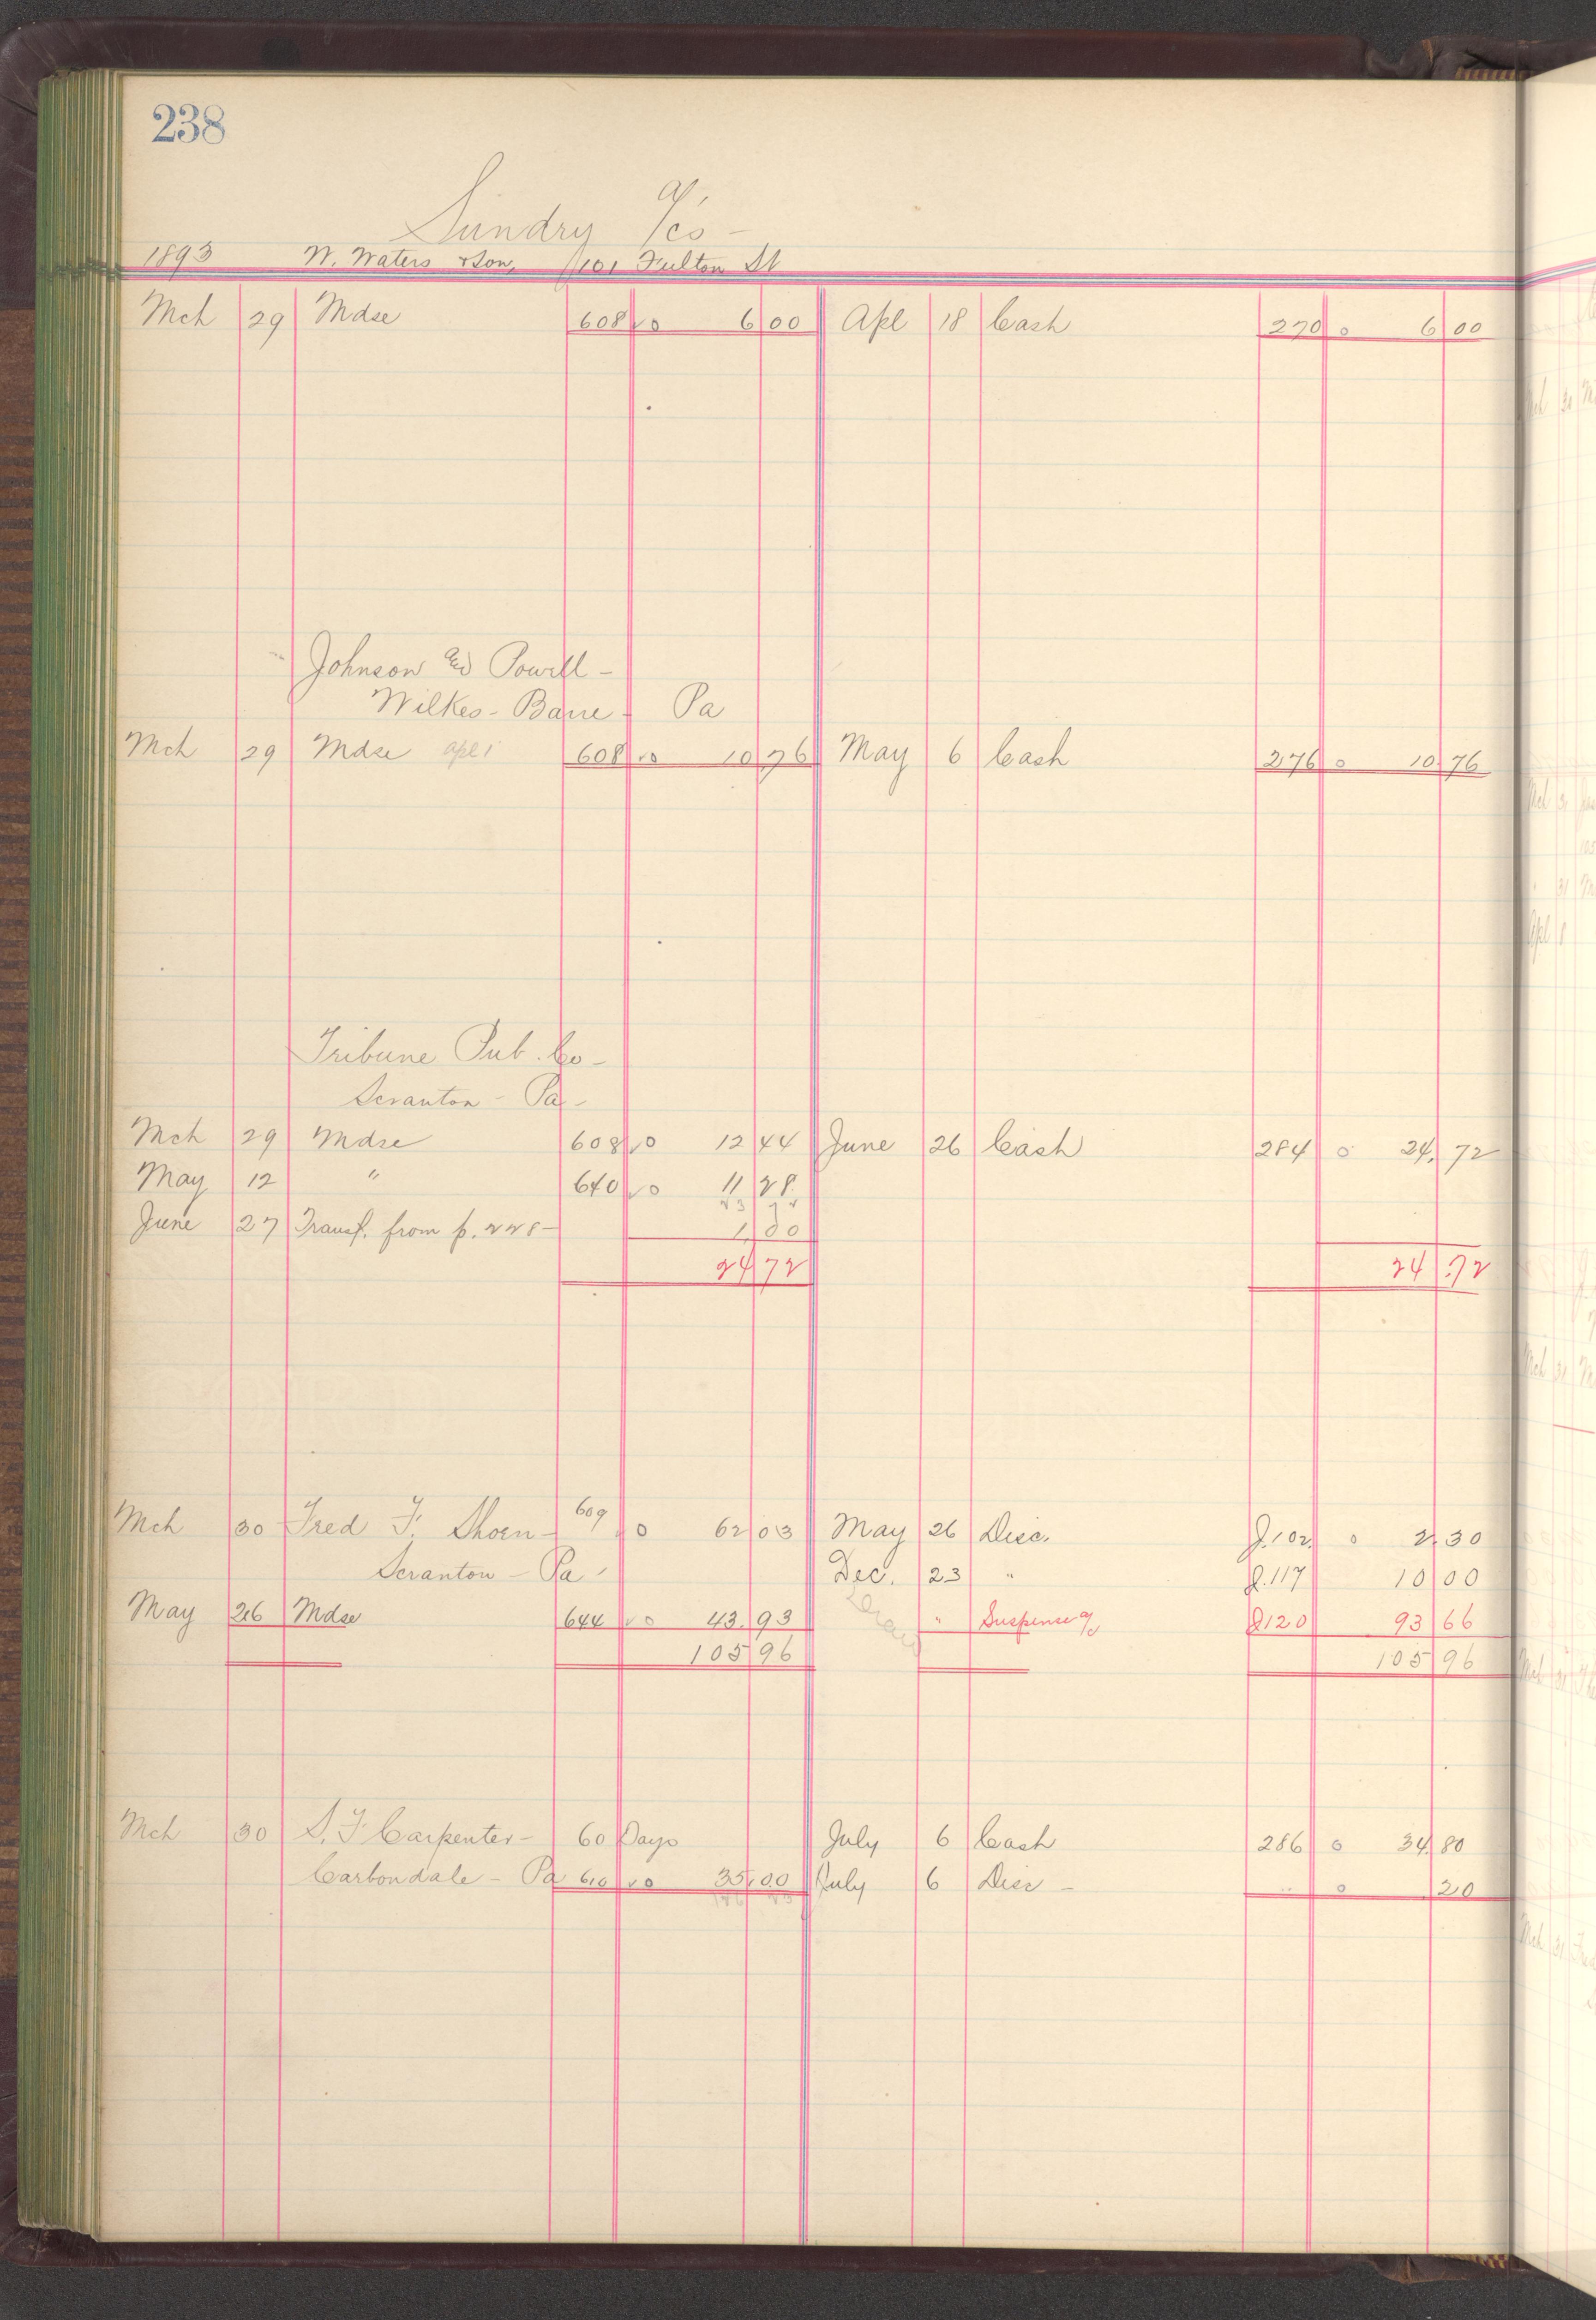 238
Sundry a/cs -
1893 W. Waters & Son, 101 Fulton St
Mch 29 Mdse 608 0 6 00 Apl 18 Cash 270 0 6 00
Johnson and Powell -
Wilkes-Barre - Pa
Mch 29 Mdse Apl 1 608 0 10 76 May 6 Cash 276 0 10 76
Tribune Pub. Co -
Scranton - Pa -
Mch 29 Mdse 608 0 12 44 June 26 Cash 284 0 24 72
May 12 " 640 0 11 28
June 27 Transf. from p. 228 - 1 00
24 72 24 72
Mch 30 Fred F. 609 0 62 03 May 26 Disc. J. 102 0 2 30
Scranton - Pa - Dec. 23 " J. 117 10 00
May 26 Mdse 644 0 43 93 " Suspense a/c J 120 93 66
105 96 105 96
Mch 30 S. F. Carpenter - 60 Days July 6 Cash 286 0 34 80
Carbondale - Pa 610 0 35 00 July 6 Disc - 0 20